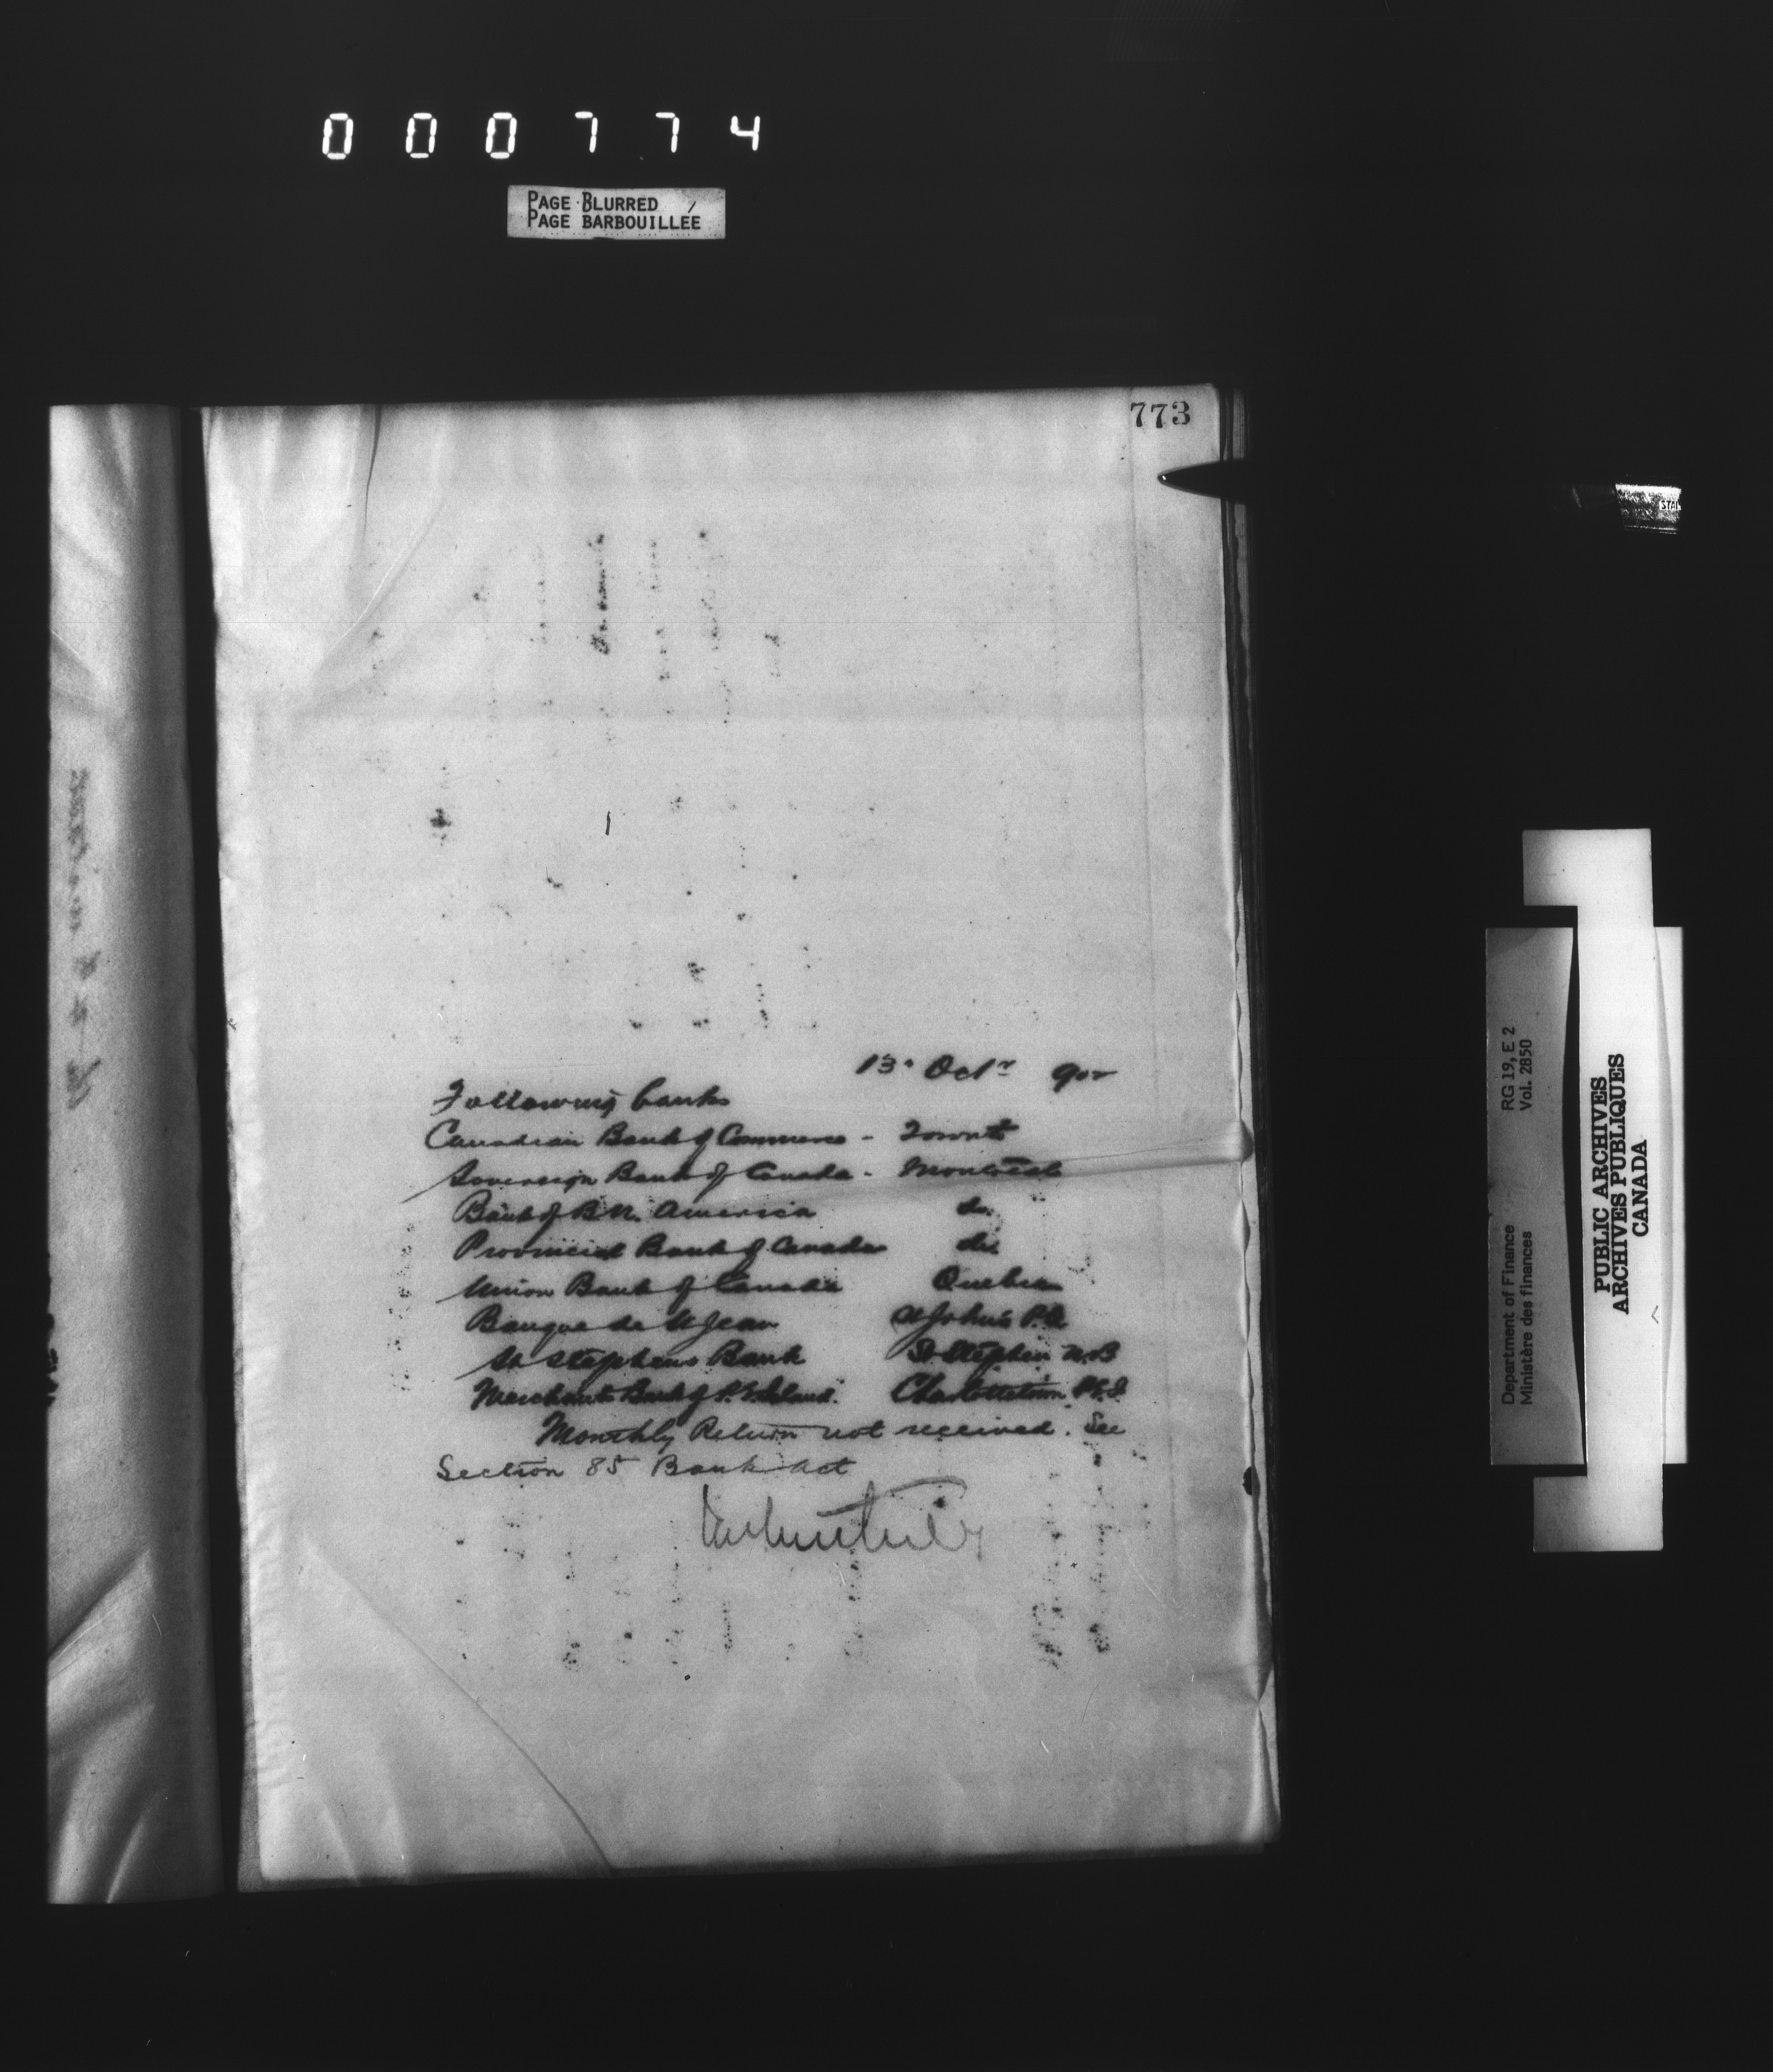 000774
PAGE BLURRED
PAGE BARBOUILLÉE
773
13 Octr 902
Following banks
Canadian Bank of Commerce - Toronto
Sovereign Bank of Canada - Montreal
Bank of B.N. America do.
Provincial Bank of Canada do.
Union Bank of Canada Quebec
Banque de St Jean St John's P.Q.
St Stephens Bank St Stephen N.B
Merchants Bank of P.E. Island. Charlottetown P.E.I.
Monthly Return not received. See
Section 85 Bank Act
STAN
Department of Finance RG 19, E 2
Ministère des finances Vol. 2850
PUBLIC ARCHIVES
ARCHIVES PUBLIQUES
CANADA